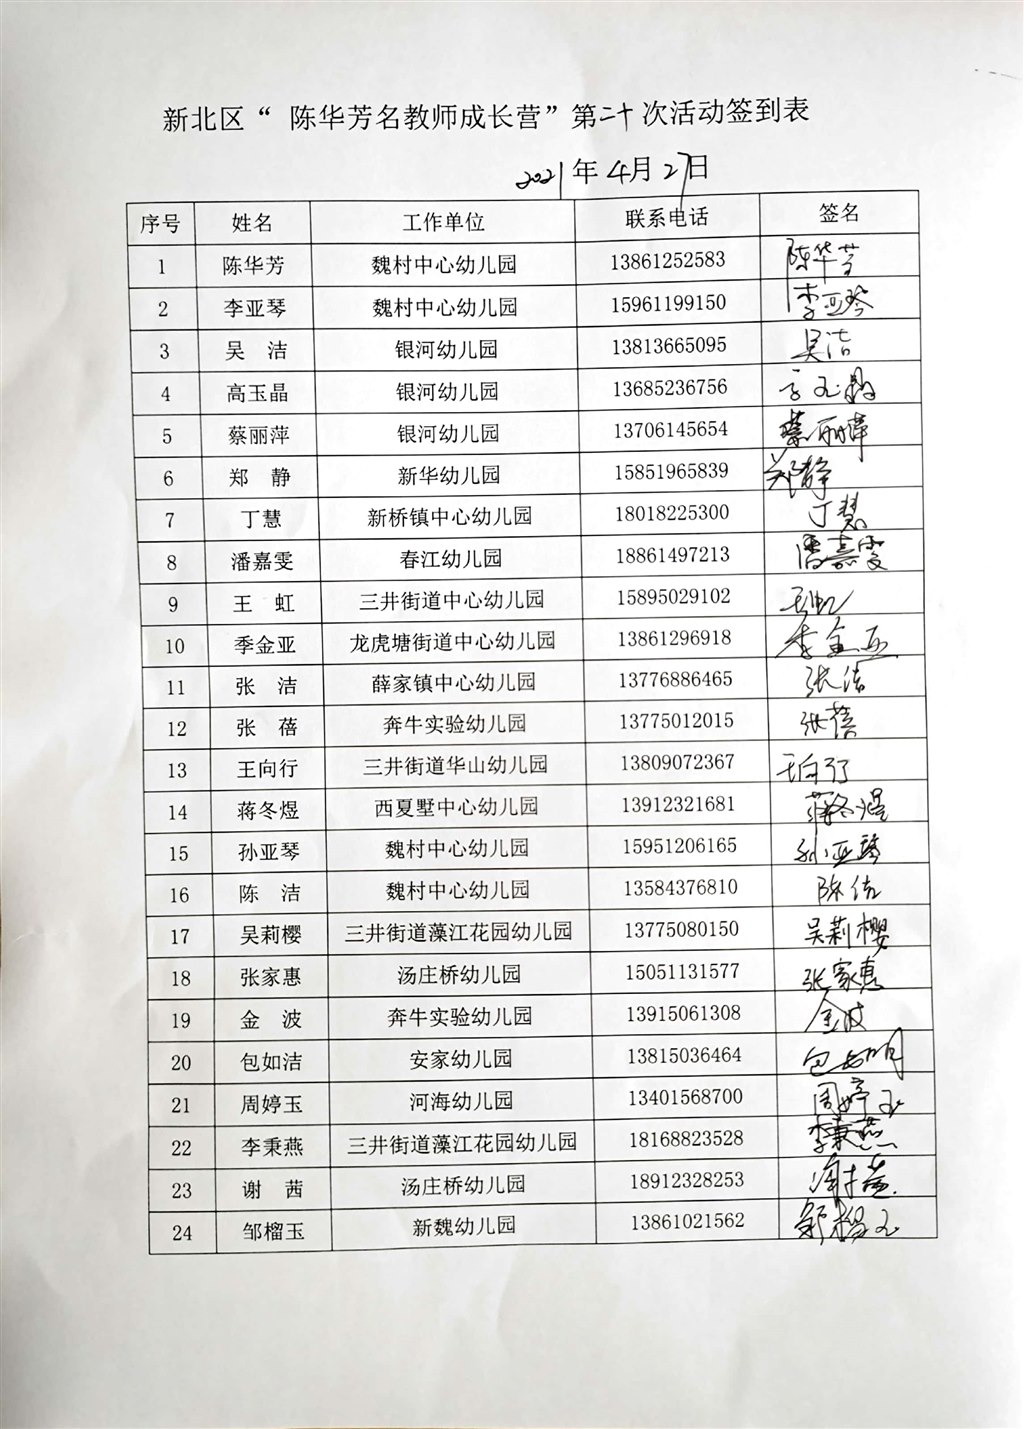 新北区“ 陈华芳名教师成长营”第二十次活动签到表
2021年4月27日
序号 姓名 工作单位 联系电话 签名
1 陈华芳 魏村中心幼儿园 13861252583 陈华芳
2 李亚琴 魏村中心幼儿园 15961199150 李亚琴
3 吴 洁 银河幼儿园 13813665095 吴洁
4 高玉晶 银河幼儿园 13685236756 高玉晶
5 蔡丽萍 银河幼儿园 13706145654 蔡丽萍
6 郑 静 新华幼儿园 15851965839 郑静
7 丁慧 新桥镇中心幼儿园 18018225300 丁慧
8 潘嘉雯 春江幼儿园 18861497213 潘嘉雯
9 王 虹 三井街道中心幼儿园 15895029102 王虹
10 季金亚 龙虎塘街道中心幼儿园 13861296918 季金亚
11 张 洁 薛家镇中心幼儿园 13776886465 张洁
12 张 蓓 奔牛实验幼儿园 13775012015 张蓓
13 王向行 三井街道华山幼儿园 13809072367 王向行
14 蒋冬煜 西夏墅中心幼儿园 13912321681 蒋冬煜
15 孙亚琴 魏村中心幼儿园 15951206165 孙亚琴
16 陈 洁 魏村中心幼儿园 13584376810 陈洁
17 吴莉樱 三井街道藻江花园幼儿园 13775080150 吴莉樱
18 张家惠 汤庄桥幼儿园 15051131577 张家惠
19 金 波 奔牛实验幼儿园 13915061308 金波
20 包如洁 安家幼儿园 13815036464
21 周婷玉 河海幼儿园 13401568700 周婷玉
22 李秉燕 三井街道藻江花园幼儿园 18168823528 李秉燕
23 谢 茜 汤庄桥幼儿园 18912328253
24 邹榴玉 新魏幼儿园 13861021562 邹榴玉